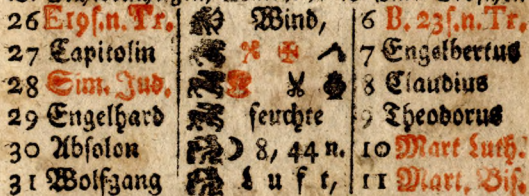 26 E19ſ.n.Tr. Wind, 6 B. 23ſ.n.Tr.
27 Capitolin 7 Engelbertus
28 Sim. Jud. 8 Claudius
29 Engelhard feuchte 9 Theodorus
30 Abſolon ☽ 8, 44 n. 10 Mart Luth.
31 Wolfgang Luft, 11 Mart. Biſ